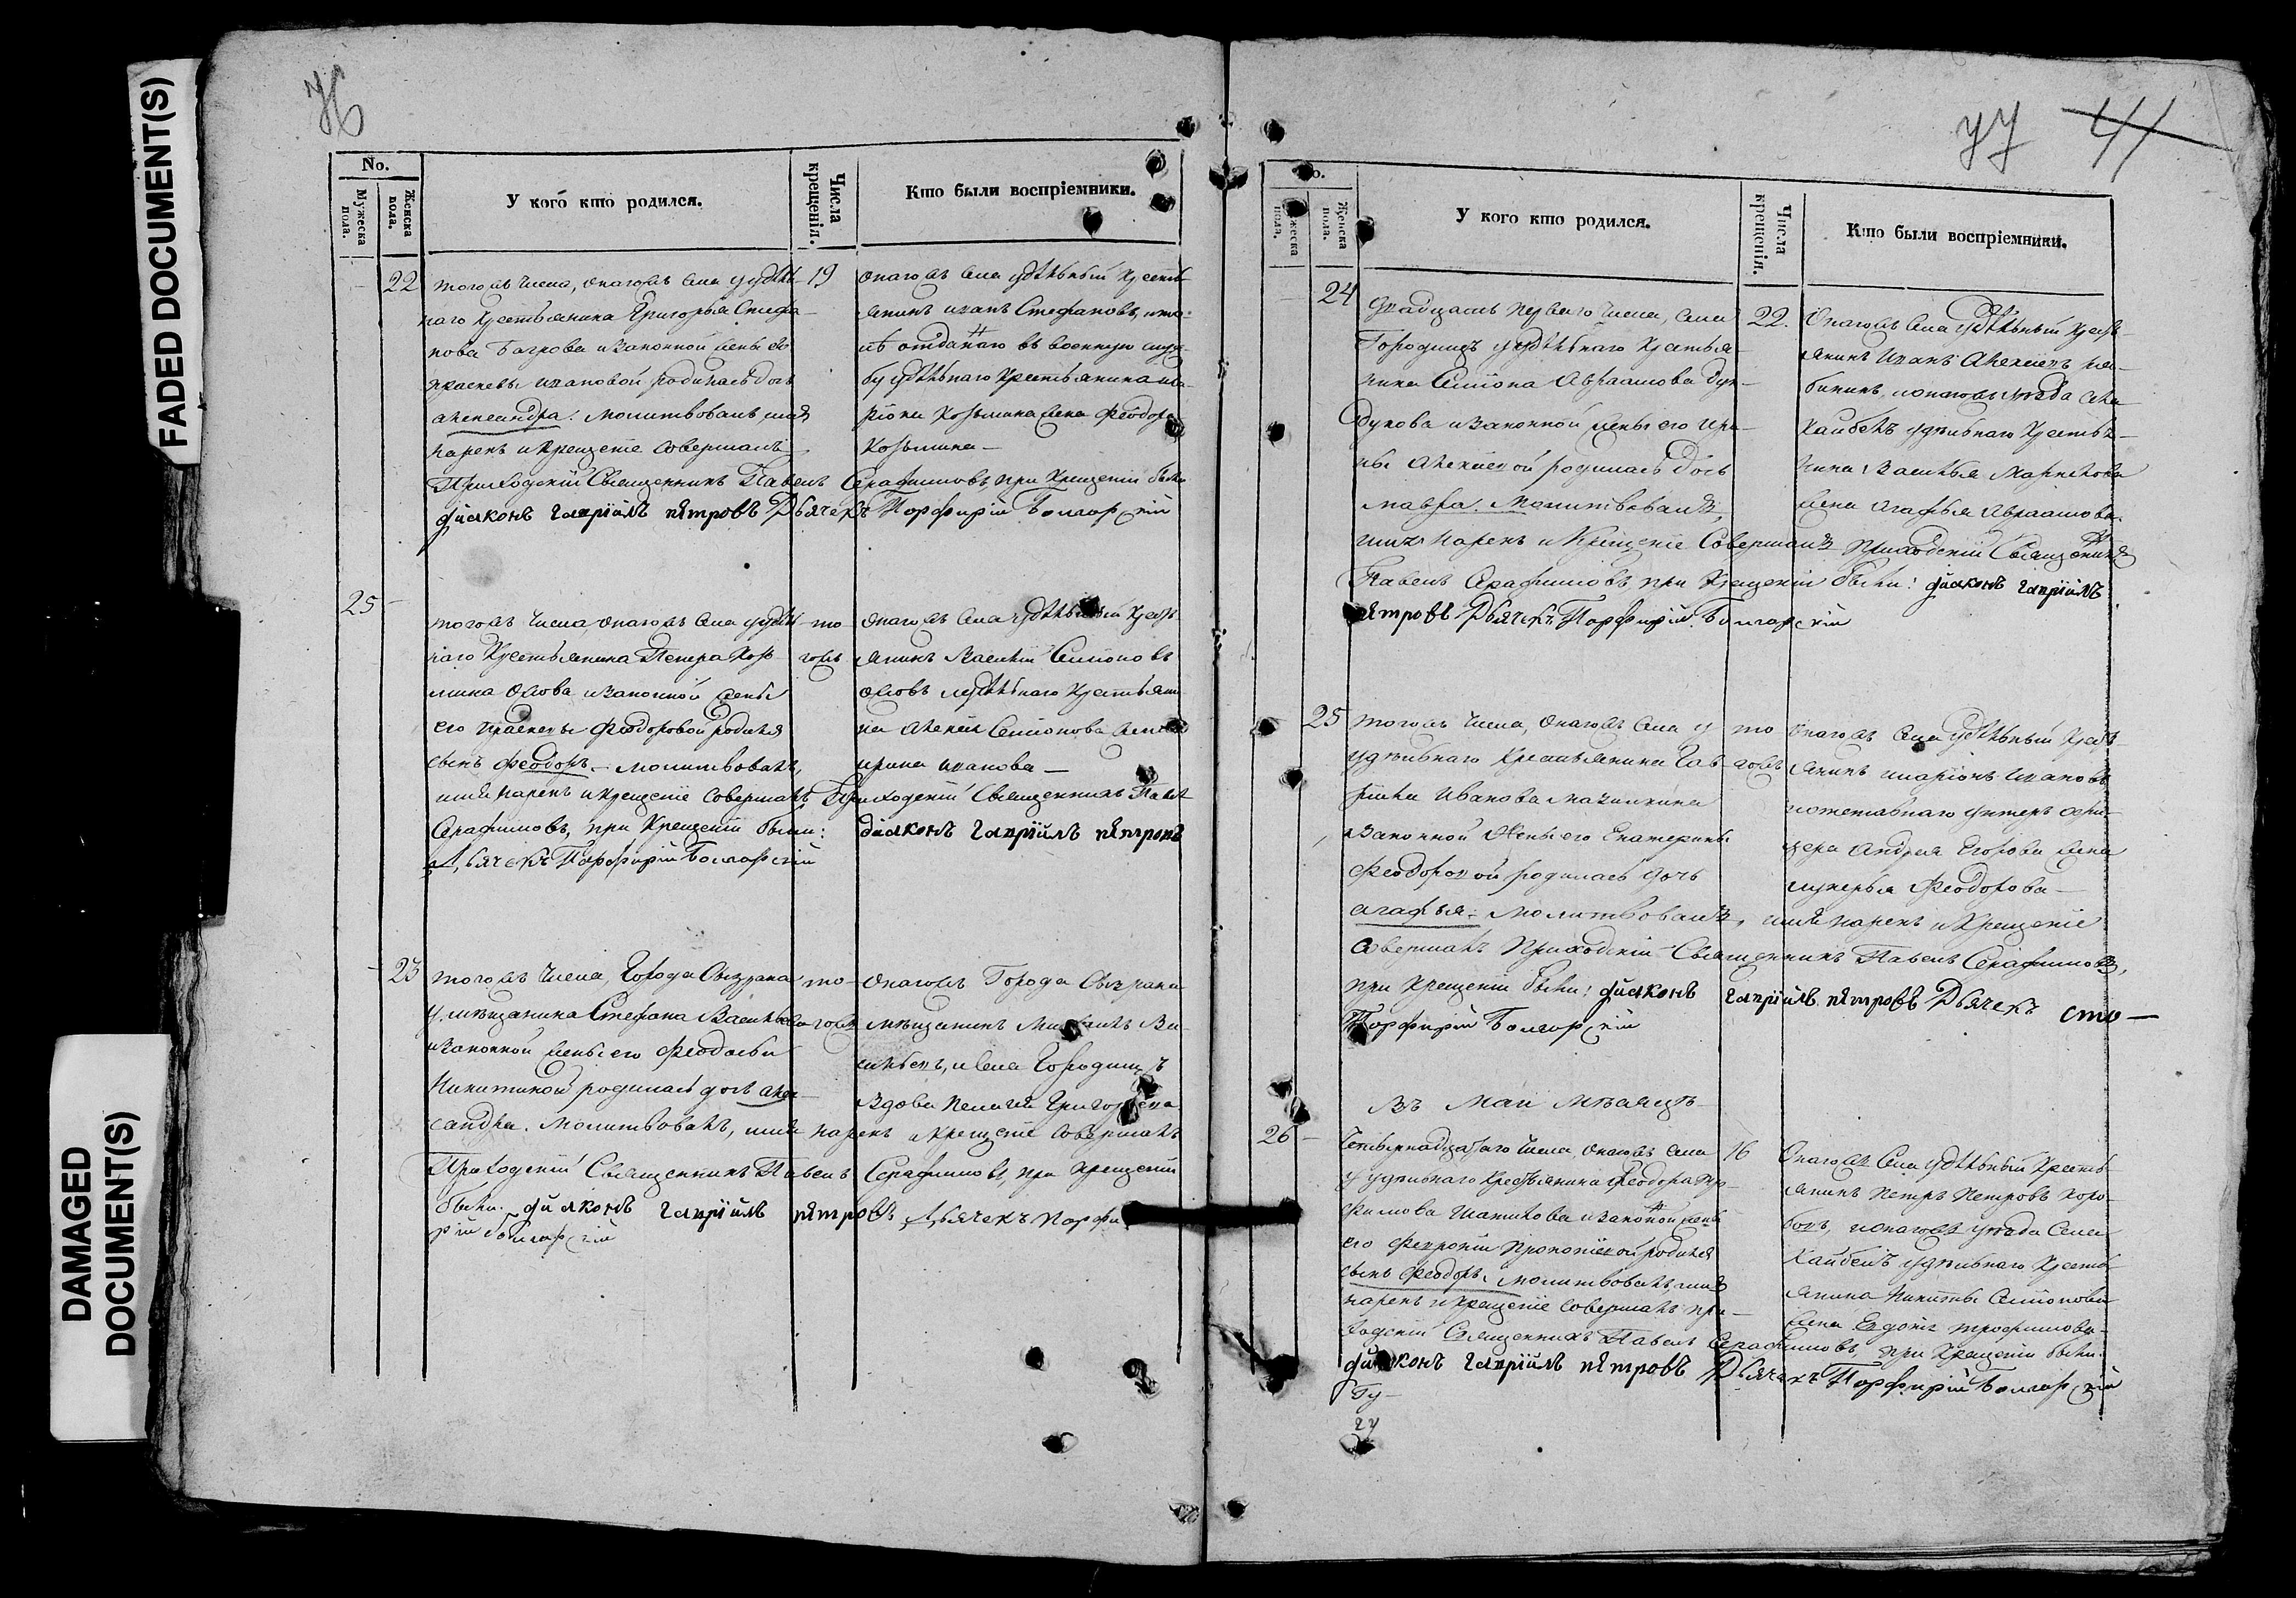 FADED DOCUMENT(S)
DAMAGED
DOCUMENT(S)
No.
Мужеска пола.
Женска пола.
У кого кто родился.
Числа крещенія.
Кто были воспріемники.
22
тогожъ числа, онагожъ села у удѣль-
наго крестьянина Григорья Стефа-
нова Багрова и законной жены его
Ивановой родилась дочь
александра. молитвовалъ, имя
нарекъ и крещеніе совершалъ
Приходскій Священникъ Павелъ Серафимовъ, при крещеніи были
діаконъ гавріилъ пѣтровъ Дьячекъ Порфирій Болгарскій
19
онагожъ села удѣльный кресть-
янинъ иванъ Стефановъ, и
отданнаго въ военную служ-
бу удѣльнаго крестьянина
Козьмина жена Феодора
Козьмина
25
тогожъ числа, онагожъ села у удѣль-
наго крестьянина Петра Козь-
мина и законной жены
его Феодоровой родился
сынъ Феодоръ. молитвовалъ,
имя нарекъ и крещеніе совершалъ Приходскій Священникъ Павелъ
Серафимовъ, при крещеніи были: діаконъ гавріилъ пѣтровъ
Дьячекъ Порфирій Болгарскій
тогожъ
онагожъ села удѣльный кресть-
янинъ Василій Симіоновъ
и удѣльнаго крестьяни-
на алексѣя Симіонова жена
ирина иванова
23
тогожъ числа, Города Сызрана
у мѣщанина Стефана Васильева
и законной жены его Феодосьи
Никитиной родилась дочь алек-
сандра. молитвовалъ, имя нарекъ и крещеніе совершалъ
Приходскій Священникъ Павелъ Серафимовъ, при крещеніи
были: діаконъ гавріилъ пѣтровъ Дьячекъ Порфи-
рій Болгарскій
тогожъ
онагожъ Города Сызрана
мѣщанинъ Михаилъ Ва-
сильевъ, и села Городищъ
вдова Пелагея Григорьева
44
41
No.
Мужеска пола.
Женска пола.
У кого кто родился.
Числа крещенія.
Кто были воспріемники.
24
Двадцать перваго числа, села
Городищъ у удѣльнаго крестья-
нина Симіона Авраамова Дун-
дукова и законной жены его Ири-
ны Алексіевой родилась дочь
мавра. Молитвовалъ,
имя нарекъ и крещеніе совершалъ приходскій Священникъ
Павелъ Серафимовъ, при крещеніи были: діаконъ гавріилъ
пѣтровъ Дьячекъ Порфирій Болгарскій
22.
Онагожъ села удѣльный кресть-
янинъ Иванъ Алексіевъ ря-
бининъ, и онагожъ уѣзда села
Каибелъ удѣльнаго крестья-
нина Василья
жена агафья Авраамова.
25
тогожъ числа, онагожъ села у
удѣльнаго крестьянина Гав-
ріила Иванова
и законной жены его Екатерины
Феодоровой родилась дочь
агафья. молитвовалъ, имя нарекъ и крещеніе
совершалъ Приходскій Священникъ Павелъ Серафимовъ,
при крещеніи были: діаконъ гавріилъ пѣтровъ Дьячекъ
Порфирій Болгарскій
сто—
тогожъ
онагожъ села удѣльный кресть-
янинъ иларіонъ ивановъ
унтеръ офи-
цера андрея Егорова жена
лукерья Феодорова
Въ Маіи мѣсяцѣ
26
Четырнадцатаго числа, онагожъ села
у удѣльнаго крестьянина Феодора Тро-
фимова и законной жены
его Февроніи Прокопіевой родился
сынъ Феодоръ. молитвовалъ, имя
нарекъ и крещеніе совершалъ при-
ходскій Священникъ Павелъ Серафимовъ, при крещеніи были:
діаконъ гавріилъ пѣтровъ Дьячекъ Порфирій Болгарскій
16
Онагожъ села удѣльный кресть-
янинъ Петръ Петровъ
и онагожъ уѣзда села
Каибелъ удѣльнаго кресть-
янина Никиты Симіонова
жена Евдокія трофимова